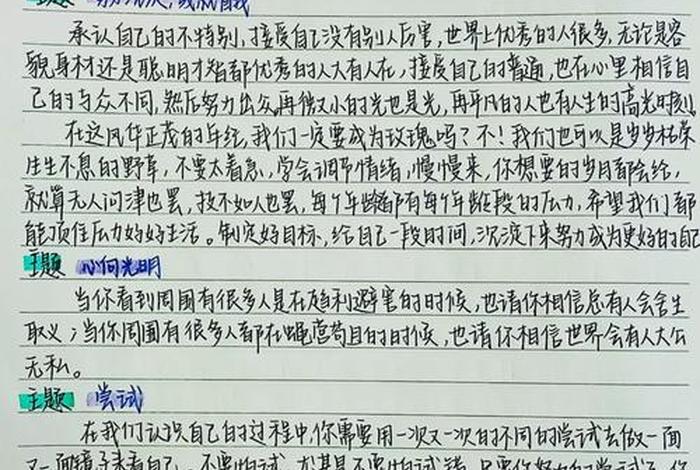 主题
承认自己的不特别,接受自己没有别人厉害,世界上优秀的人很多,无论是容
貌身材还是聪明才智都优秀的人大有人在,接受自己的普通,也在心里相信自
己的与众不同,然后努力出众。再微小的光也是光,再平凡的人也有人生的高光时刻
在这风华正茂的年纪,我们一定要成为玫瑰吗?不!我们也可以是岁岁枯荣
生生不息的野草,不要太着急,学会调节情绪,慢慢来,你想要的岁月都会给,
就算无人问津也罢,技不如人也罢,每个年龄都有每个年龄段的压力,希望我们都
能顶住压力好好生活。制定好目标,给自己一段时间,沉淀下来努力成为更好的自己
主题 心向光明
当你看到周围有很多人是在趋利避害的时候,也请你相信总有人会舍生
取义;当你周围有很多人都在蝇营苟且的时候,也请你相信世界会有人大公
无私。
主题 尝试
在我们认识自己的过程中,你需要用一次又一次的不同的尝试去做一面
又一面镜子来看自己。不要怕试,尤其是不要怕试错,只要你